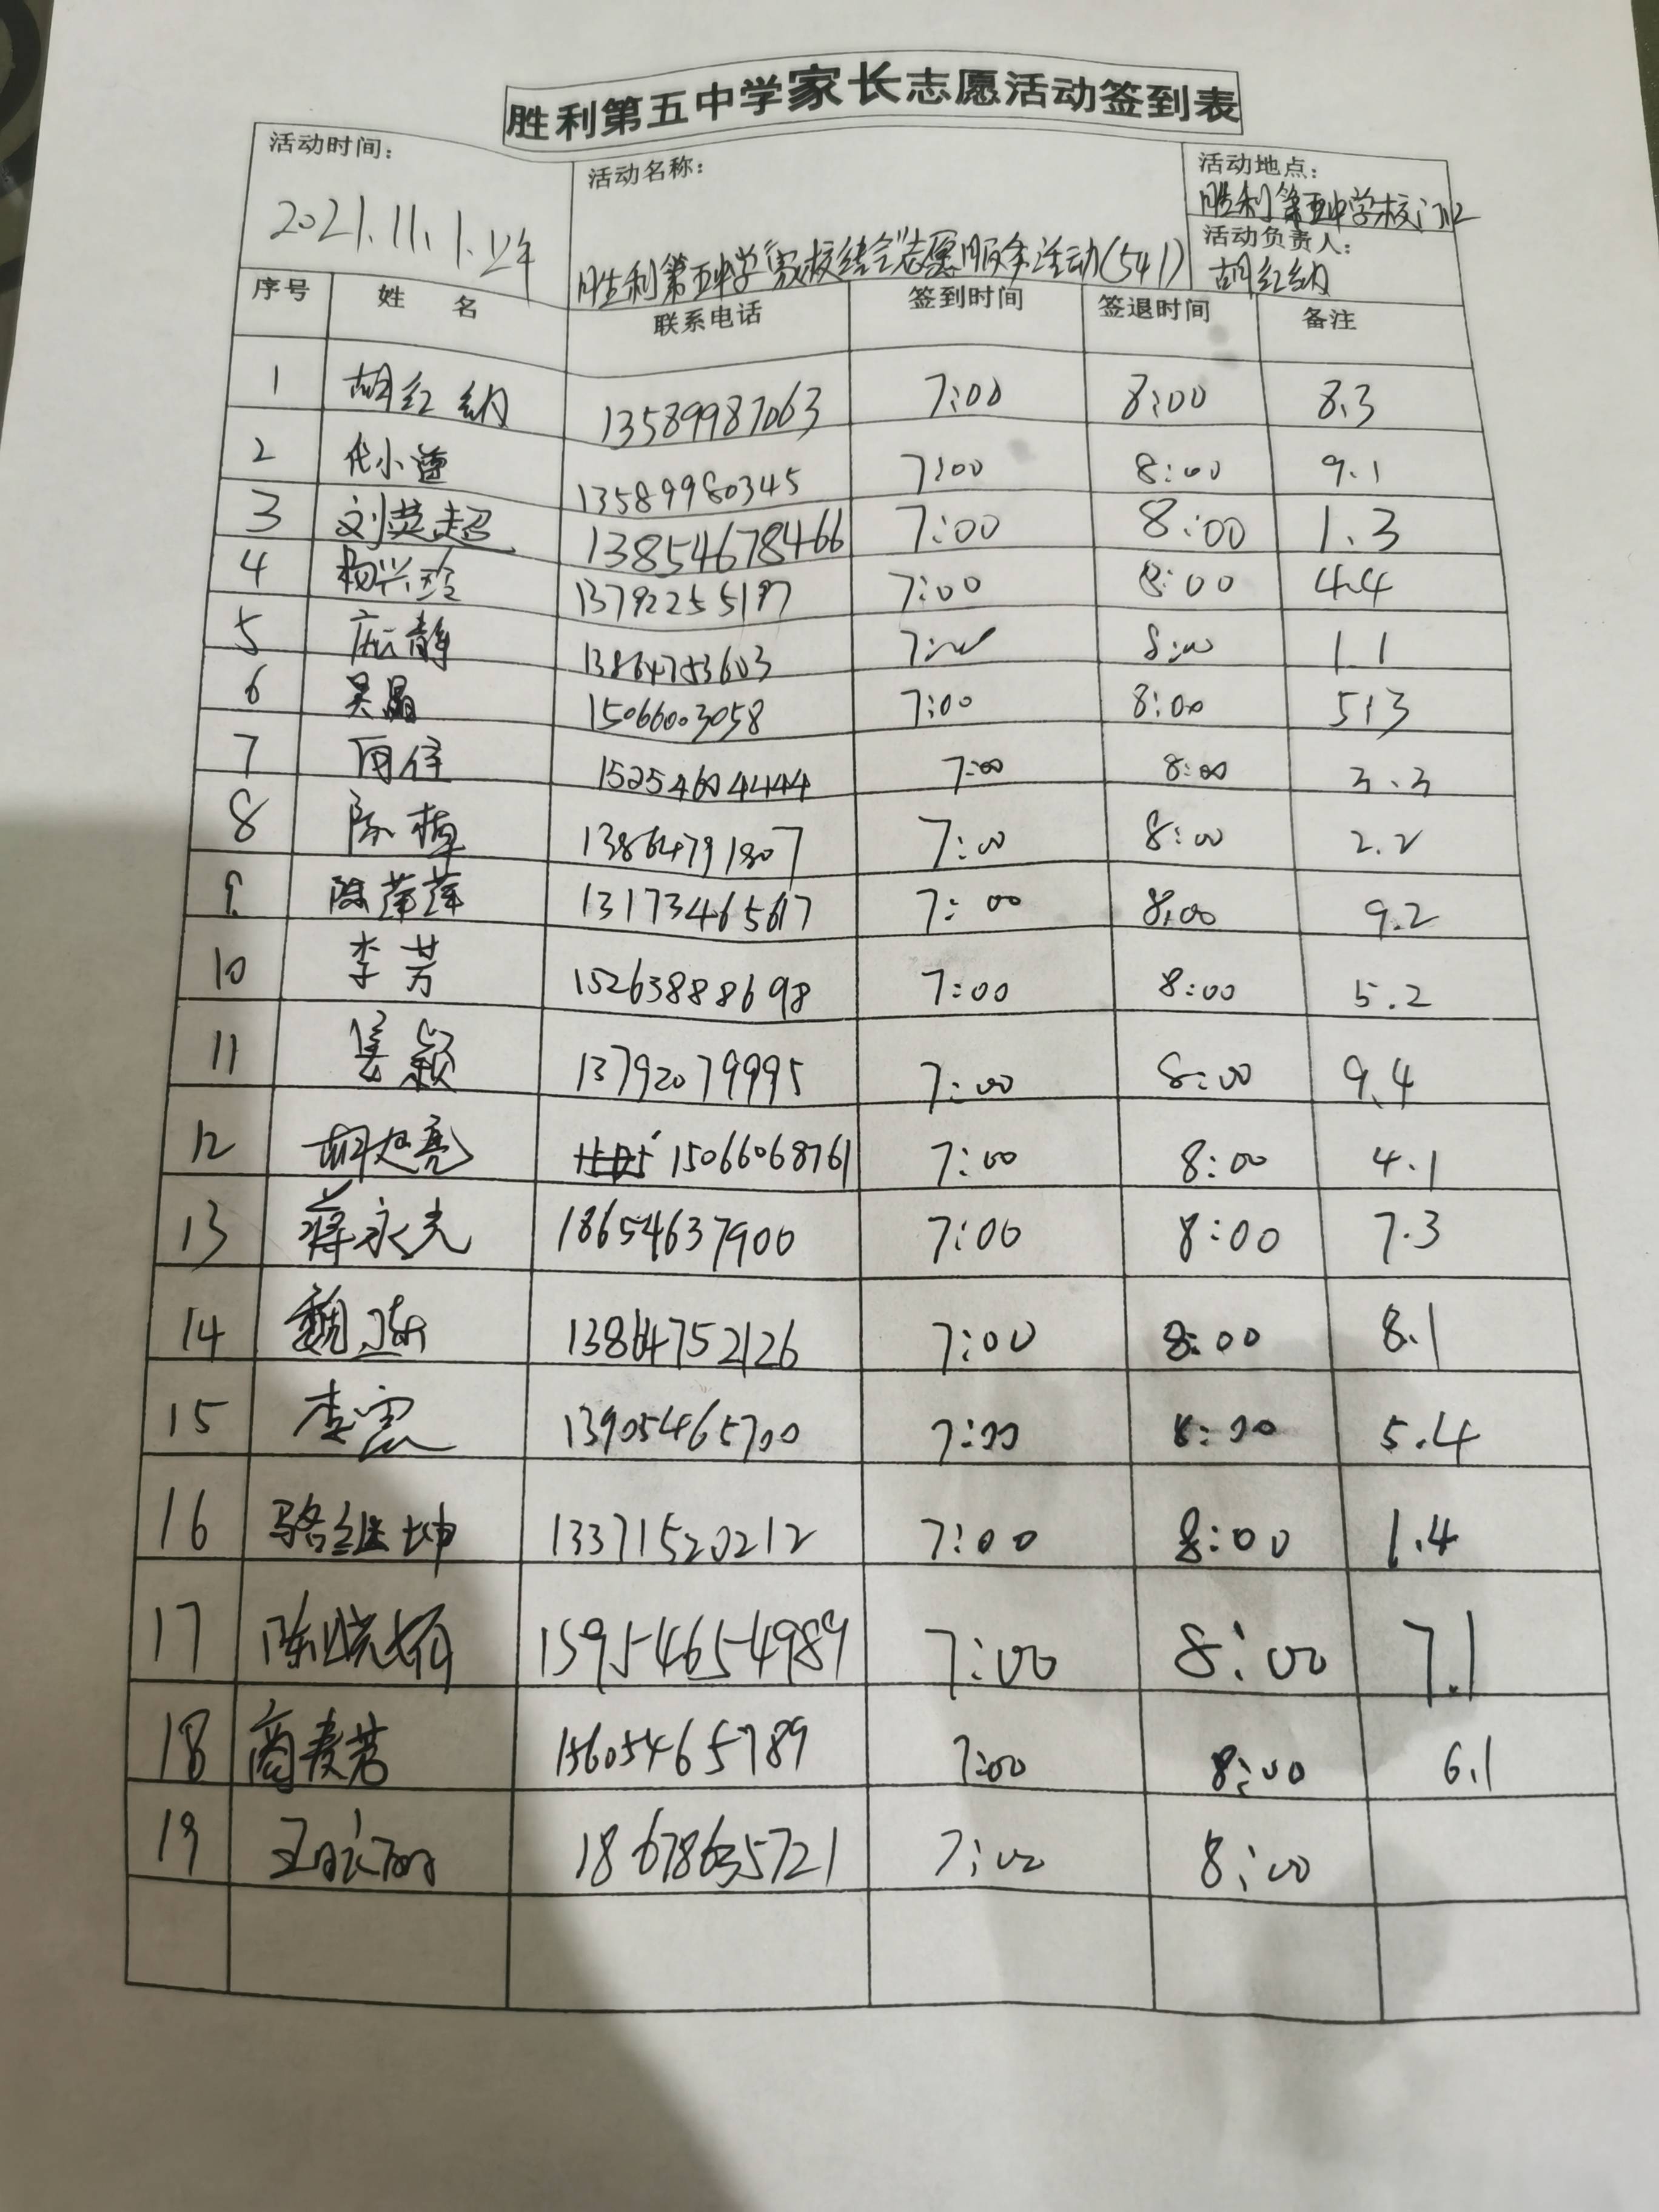 胜利第五中学家长志愿活动签到表
活动时间: 2021.11.1.上午
活动名称: 胜利第五中学"家校结合"志愿服务活动(541)
活动地点: 胜利第五中学校门口
活动负责人: 胡红纳
序号 姓名 联系电话 签到时间 签退时间 备注
1 胡红纳 13589987063 7:00 8:00 8.3
2 代小莲 13589980345 7:00 8:00 9.1
3 刘英超 13854678466 7:00 8:00 1.3
4 杨兴玲 13792255197 7:00 8:00 4.4
5 静 13864753603 7:00 8:00 1.1
6 吴晶 15066003058 7:00 8:00 5.3
7 15254604444 7:00 8:00 3.3
8 陈 13864791807 7:00 8:00 2.2
9 陈萍萍 13173465617 7:00 8:00 9.2
10 李芳 15263888698 7:00 8:00 5.2
11 颖 13792079995 7:00 8:00 9.4
12 胡 亮 15066068761 7:00 8:00 4.1
13 蒋永光 18654637900 7:00 8:00 7.3
14 魏 13864752126 7:00 8:00 8.1
15 李 13905465700 7:00 8:00 5.4
16 骆继坤 13371520212 7:00 8:00 1.4
17 陈晓娟 15954654989 7:00 8:00 7.1
18 商 芳 15605465789 7:00 8:00 6.1
19 王 丽 18678635721 7:00 8:00